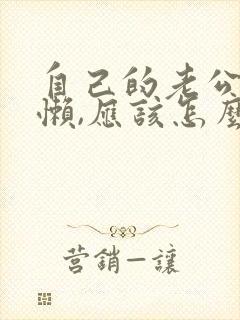 自己的老公
懒,應該怎麼
营銷—讓